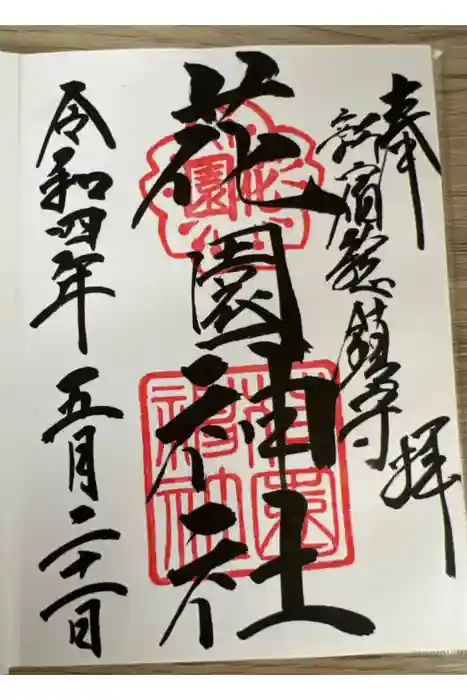 奉拝
新宿総鎮守
花園神社
令和四年五月二十一日
花園神社